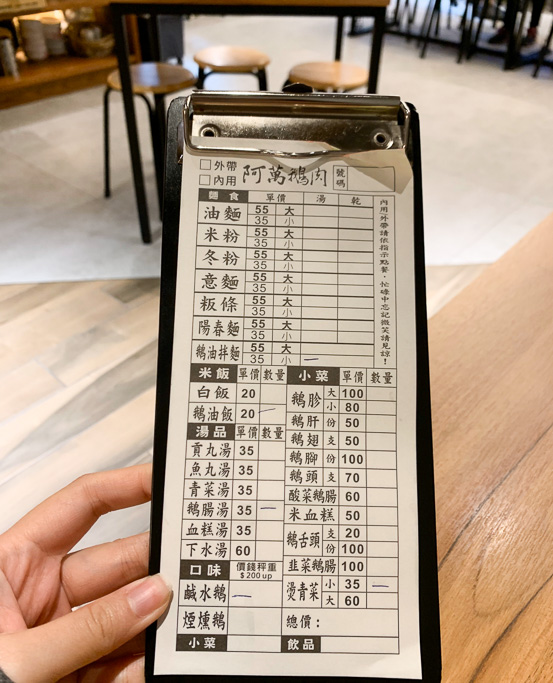 □外帶
□內用 阿萬鵝肉 號碼
麵食 單價 湯 乾
油麵 55 大
35 小
米粉 55 大
35 小
冬粉 55 大
35 小
意麵 55 大
35 小
粄條 55 大
35 小
陽春麵 55 大
35 小
鵝油拌麵 55 大
35 小
內用/外帶請依指示點餐，忙碌中忘記微笑請見諒！
米飯 單價 數量
白飯 20
鵝油飯 20
湯品 單價 數量
貢丸湯 35
魚丸湯 35
青菜湯 35
鵝腸湯 35
血糕湯 35
下水湯 60
口味 價錢秤重 $200up
鹹水鵝
煙燻鵝
小菜
小菜 單價 數量
鵝胗 大 100
小 80
鵝肝 份 50
鵝翅 支 50
鵝腳 份 100
鵝頭 支 70
酸菜鵝腸 60
米血糕 50
鵝舌頭 支 20
份 100
韭菜鵝腸 100
燙青菜 小 35
大 60
總價：
飲品